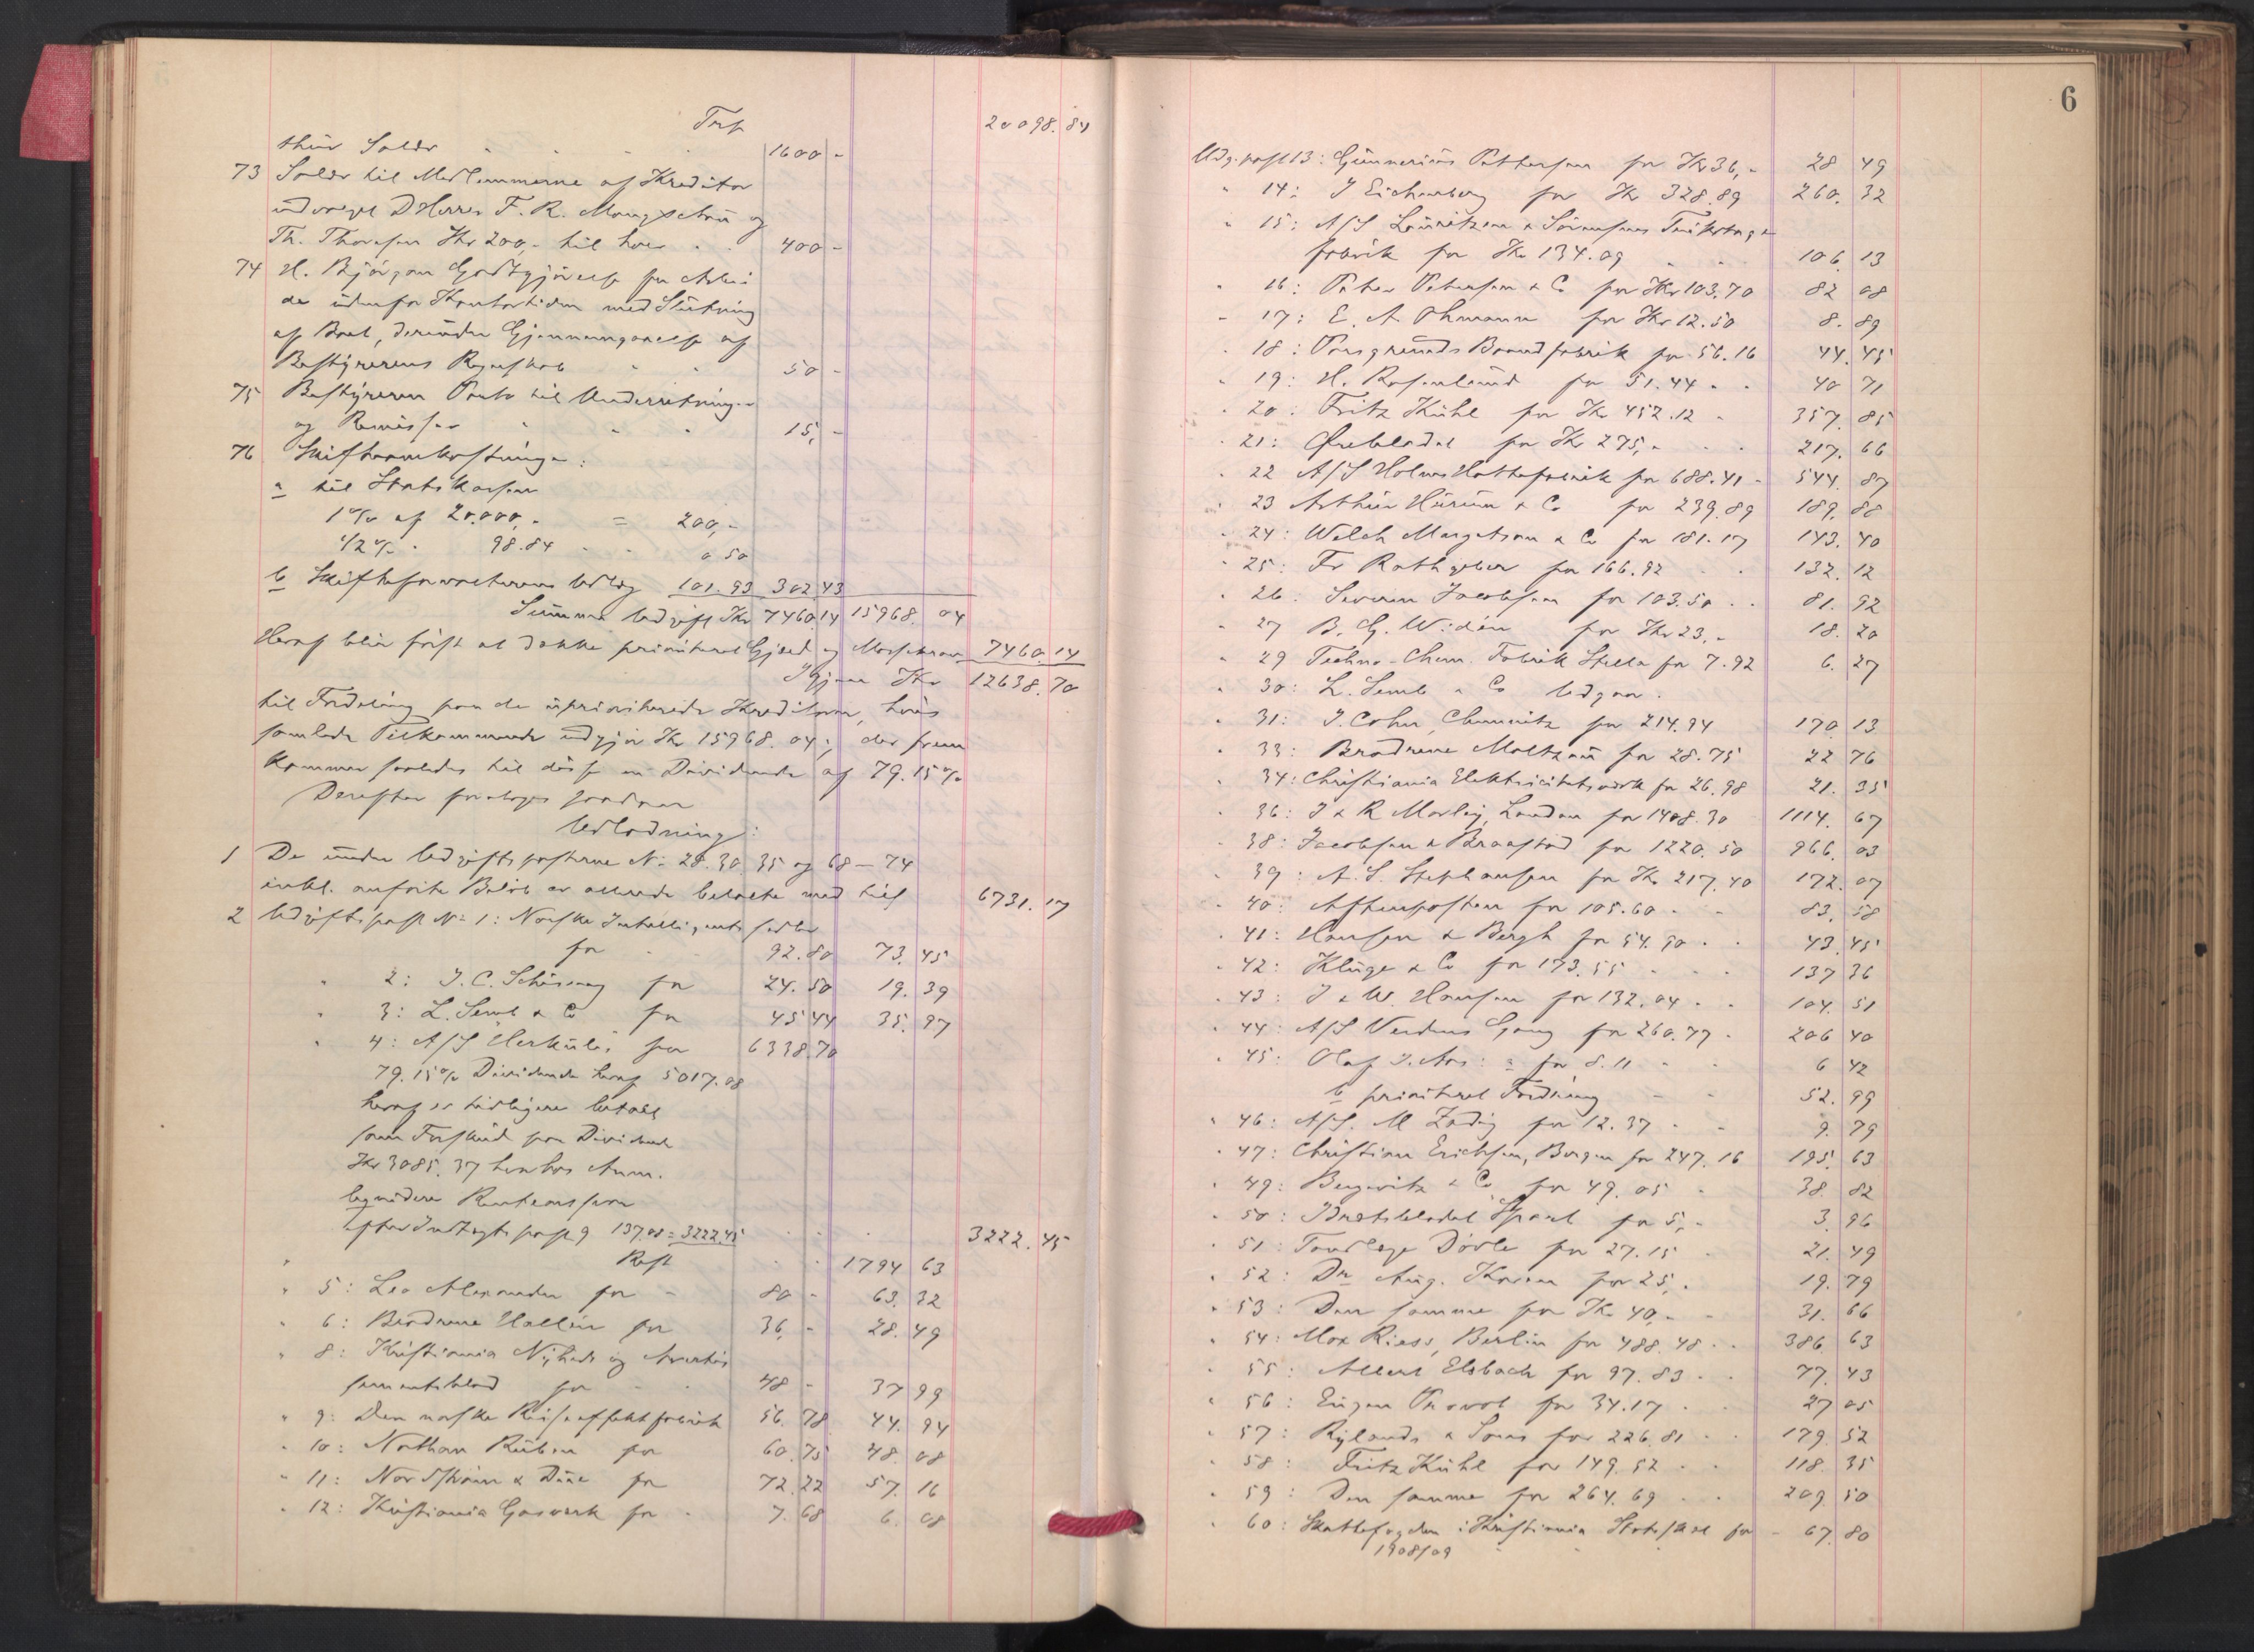 Trsp 20098.84
thur Salær 1600 -
73 Salær til Medlemmerne af Kreditor
udvalget D'Herrer F. R. Mangschou og
Th. Thoresen Kr 200,- til hver 400 -
74 H. Bjørgan Godtgjørelse for Arbei
de udenfor Kontortiden med Slutning
af Boet, derunder Gjennemgaaelse af
Bestyrerens Regnskab 50 -
75 Bestyreren Porto til Underretninger
og Remisser 15,-
76 Skifteomkostninger:
a til Statskassen
1 % af 20.000,- = 200,-
1/2 % " 98.84 0 50
b Skifteforvalterens Udlæg 101.93 302 43
Summa Udgift Kr 7460.14 15968.04
Heraf blir først at dække prioriteret Gjæld og Massekrav 7460.14
Igjen Kr 12638.70
til Fordeling paa de uprioriterede Kreditorer, hvis
samlede Tilkommende udgjør Kr 15968.04; der frem
kommer saaledes til disse en Dividende af 79.15 %
Derefter foretoges saadan
Udlodning:
1 De under Udgiftsposterne No 28. 30. 35 og 68 - 74
inkl. anførte Beløb er allerede betalte med tils 6731.17
2 Udgiftspost No 1: Norske Intelligentssedler
for 92.80 73.45
" 2: J. C. Schiwang for 24.50 19.39
" 3: L. Semb & Co for 45 44 35.97
" 4: A/S Herkules for 6338.70
79.15 % Dividende heraf 5017.08
heraf er tidligere betalt
som Forskud paa Dividende
Kr 3085.37 hvorhos Anm.
begodtgjøre
efter Indtægtspost 9 137.08 = 3222.45 3222.45
Rest 1794 63
" 5: Leo Alexander for 80 - 63.32
" 6: Brødrene Hallén for 36,- 28.49
" 8: Kristiania Nyheds og Avertis
sementsblad for 48 - 37 99
" 9: Den norske Reiseeffektfabrik 56.78 44.94
" 10: Nathan Ruben for 60.75 48.08
" 11: Nordstrøm & Due for 72.22 57.16
" 12: Kristiania Gasverk for 7.68 6.08
6
Udg. post 13: Gunnerius Pettersen for Kr 36,- 28 49
" 14: J Eichenberg for Kr 328.89 260.32
" 15: A/S Lauritzen & Sørensens Trikotage
fabrik for Kr 134.09 106.13
" 16: Peter Petersen & Co for Kr 103.70 82 08
" 17: E. A. Ohmann for Kr 12.50 8.89
" 18: Porsgrunds Baandfabrik for 56.16 44.45
" 19: H. Rosenlund for 51.44 40 71
" 20: Fritz Kühl for Kr 452.12 357.85
" 21: Ørebladet for Kr 275,- 217.66
" 22 A/S Holmens Hattefabrik for 688.41 544.87
" 23 Arthur Hurum & Co for 239.89 189.88
" 24: Welch Margetson & Co for 181.17 143.40
" 25: Fr Rathgeber for 166.92 132.12
" 26: Severin Jacobsen for 103.50 81.92
" 27 B. G. Widén for Kr 23,- 18.20
" 29 Techno-Chem. Fabrik Stella for 7.92 6.27
" 30: L. Semb & Co Udgaar.
" 31: J. Cohn, Chemnitz for 214.94 170.13
" 33: Brødrene Moltzau for 28.75 22 76
" 34: Christiania Elektricitetsværk for 26.98 21.35
" 36: J & R Morley, London for 1408.30 1114.67
" 38: Jacobsen & Braastad for 1220.50 966.03
" 39: A. S. Stephansen for Kr 217.40 172.07
" 40: Aftenposten for 105.60 83.58
" 41: Hansen & Bergh for 54.90 43.45
" 42: Kluge & Co for 173.55 137 36
" 43: J & W. Hansen for 132.04 104.51
" 44: A/S Verdens Gang for 260.77 206 40
" 45: Olaf J. Aas: a for 8.11 6 42
b prioriteret Fordring 52.99
" 46: A/S. M Zadig for 12.37 9.79
" 47: Christian Erichsen, Bergen for 247.16 195.63
" 49: Bergwitz & Co for 49.05 38.82
" 50: Idrætsbladet Sport for 5,- 3.96
" 51: Tandlæge Døvle for 27.15 21.49
" 52: Dr Aug. Koren for 25,- 19.79
" 53: Den samme for Kr 40,- 31.66
" 54: Max Riess, Berlin for 488.48 386.63
" 55: Albert Elsbach for 97.83 77.43
" 56: Eugen for 34.17 27 05
" 57: Rylands & Sons for 226.81 179.52
" 58: Fritz Kühl for 149.52 118.35
" 59: Den samme for 264.69 209 50
" 60: Skattefogden i Kristiania Statsskat for 67.80
1908/09